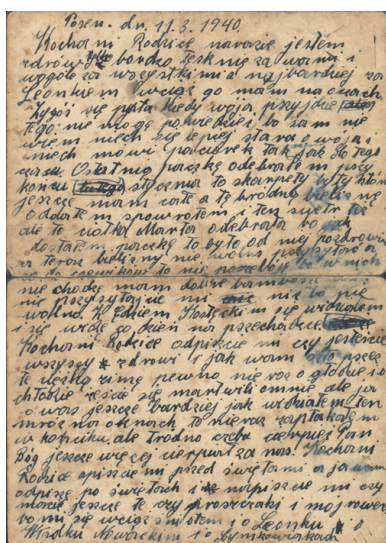 Posen. dn. 11.3. 1940
Kochani Rodzice narazie jestem
zdrów tylko bardzo tęsknię za wami i
wogóle za wszystkimi a najbardziej za
Leonkiem wciąż go mam na oczach.
Zygoś się pyta kiedy woja przyjdzie
tego nie mogę powiedzieć bo sam nie
wiem niech się lepiej stara woja i
niech mówi paciorek tak jak do tego
czasu. Ostatnią paczkę odebrałem przy
końcu stycznia to skarpety były które
jeszcze mam całe a tę brudną bieliznę
oddałem spowrotem i ten swetr też
ale to ciotka Marta odebrała bo jak
dostałem paczkę to było od niej pozdrowie
a teraz bielizny nie wolno
co do to nie potrzebuję bo w nich
nie chodzę mam dobre
nie przysyłajcie mi nic bo nie
wolno. Z się widziałem
i się widzę co dzień na przechadzce.
Kochani Rodzice odpiszcie mi czy jesteście
wszyscy zdrowi i jak wam było przez
tę ciężką zimę pewno nie raz o głodzie i o
chłodzie żeście się martwili o mnie ale ja
o was jeszcze bardziej jak widziałem ten
mróz na oknach to nieraz zapłakałem
w kąciku, ale trudno trzeba cierpieć Pan
Bóg jeszcze więcej cierpiał za nas. Kochani
Rodzice opiszcie mi przed świętami a ja wam
odpiszę po świętach i napiszcie mi czy
macie jeszcze te czy prosiaki i mój rower
bo mi się wciąż śni i o Leonku i o
i o